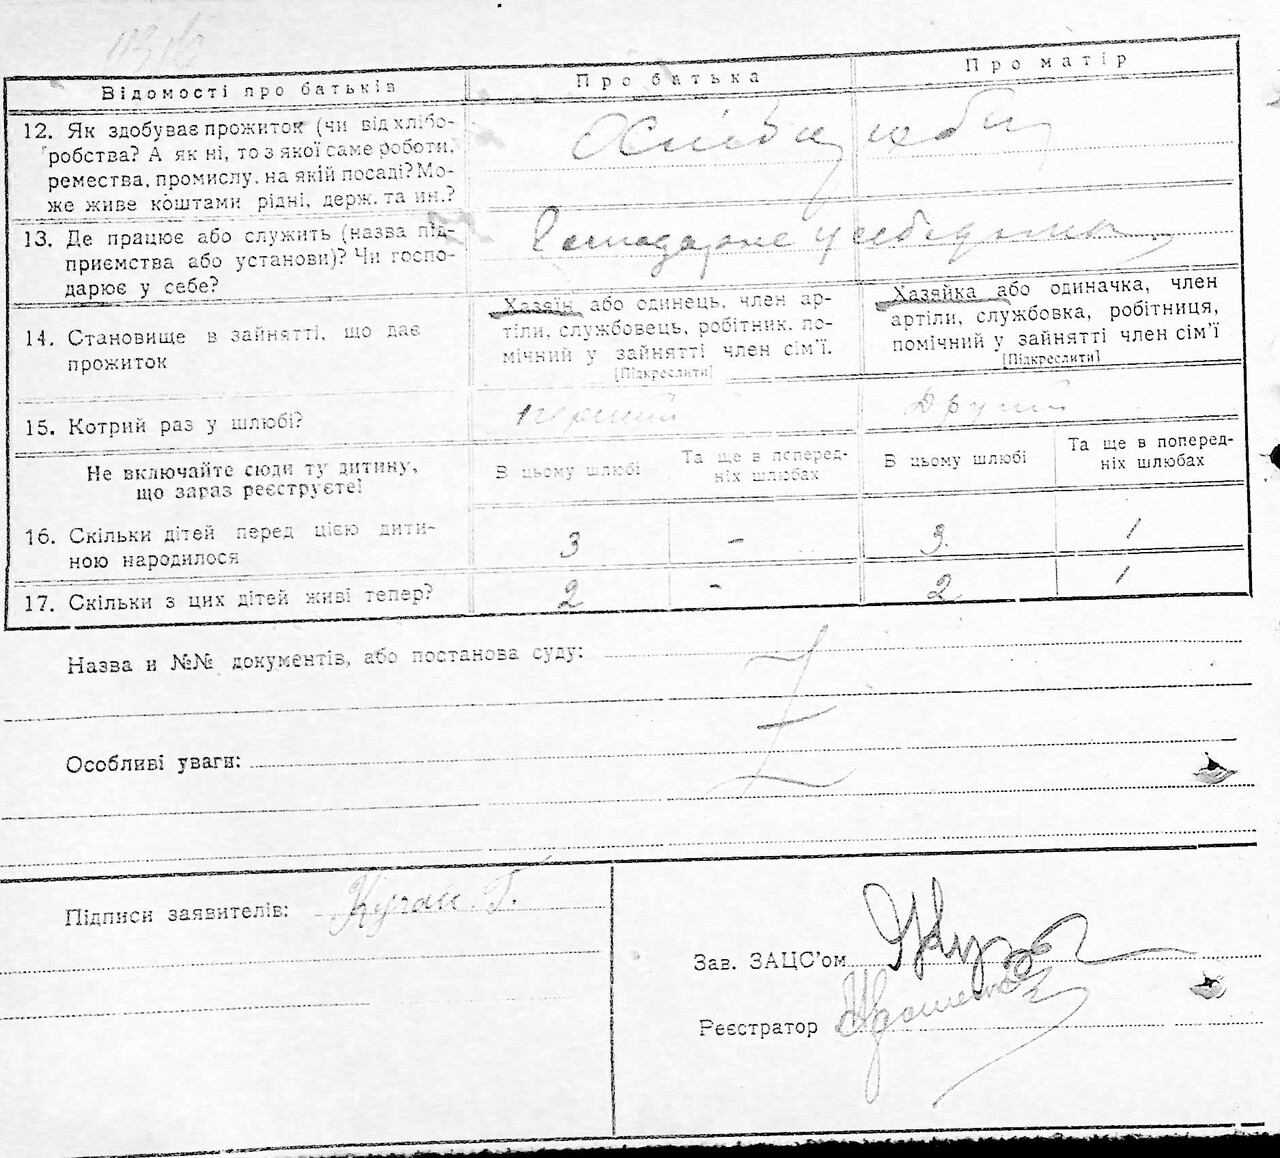 Відомості про батьків
Про батька
Про матір
12. Як здобуває прожиток (чи від хлібо-
робства? А як ні, то з якої саме роботи,
ремества, промислу, на якій посаді? Мо-
же живе коштами рідні, держ. та ин.?
13. Де працює або служить (назва під-
приємства або установи)? Чи госпо-
дарює у себе?
14. Становище в зайнятті, що дає
прожиток
Хазяїн або одинець, член ар-
тіли, службовець, робітник, по-
мічний у зайнятті член сім'ї.
[Підкреслити]
Хазяйка або одиначка, член
артіли, службовка, робітниця,
помічний у зайнятті член сім'ї
[Підкреслити]
15. Котрий раз у шлюбі?
перший
другий
Не включайте сюди ту дитину,
що зараз реєструєте!
В цьому шлюбі
Та ще в поперед-
ніх шлюбах
В цьому шлюбі
Та ще в поперед-
ніх шлюбах
16. Скільки дітей перед цією дити-
ною народилося
3
-
3
1
17. Скільки з цих дітей живі тепер?
2
-
2
1
Назва и №№ документів, або постанова суду:
Особливі уваги:
Підписи заявителів:
Зав. ЗАЦС'ом
Реєстратор